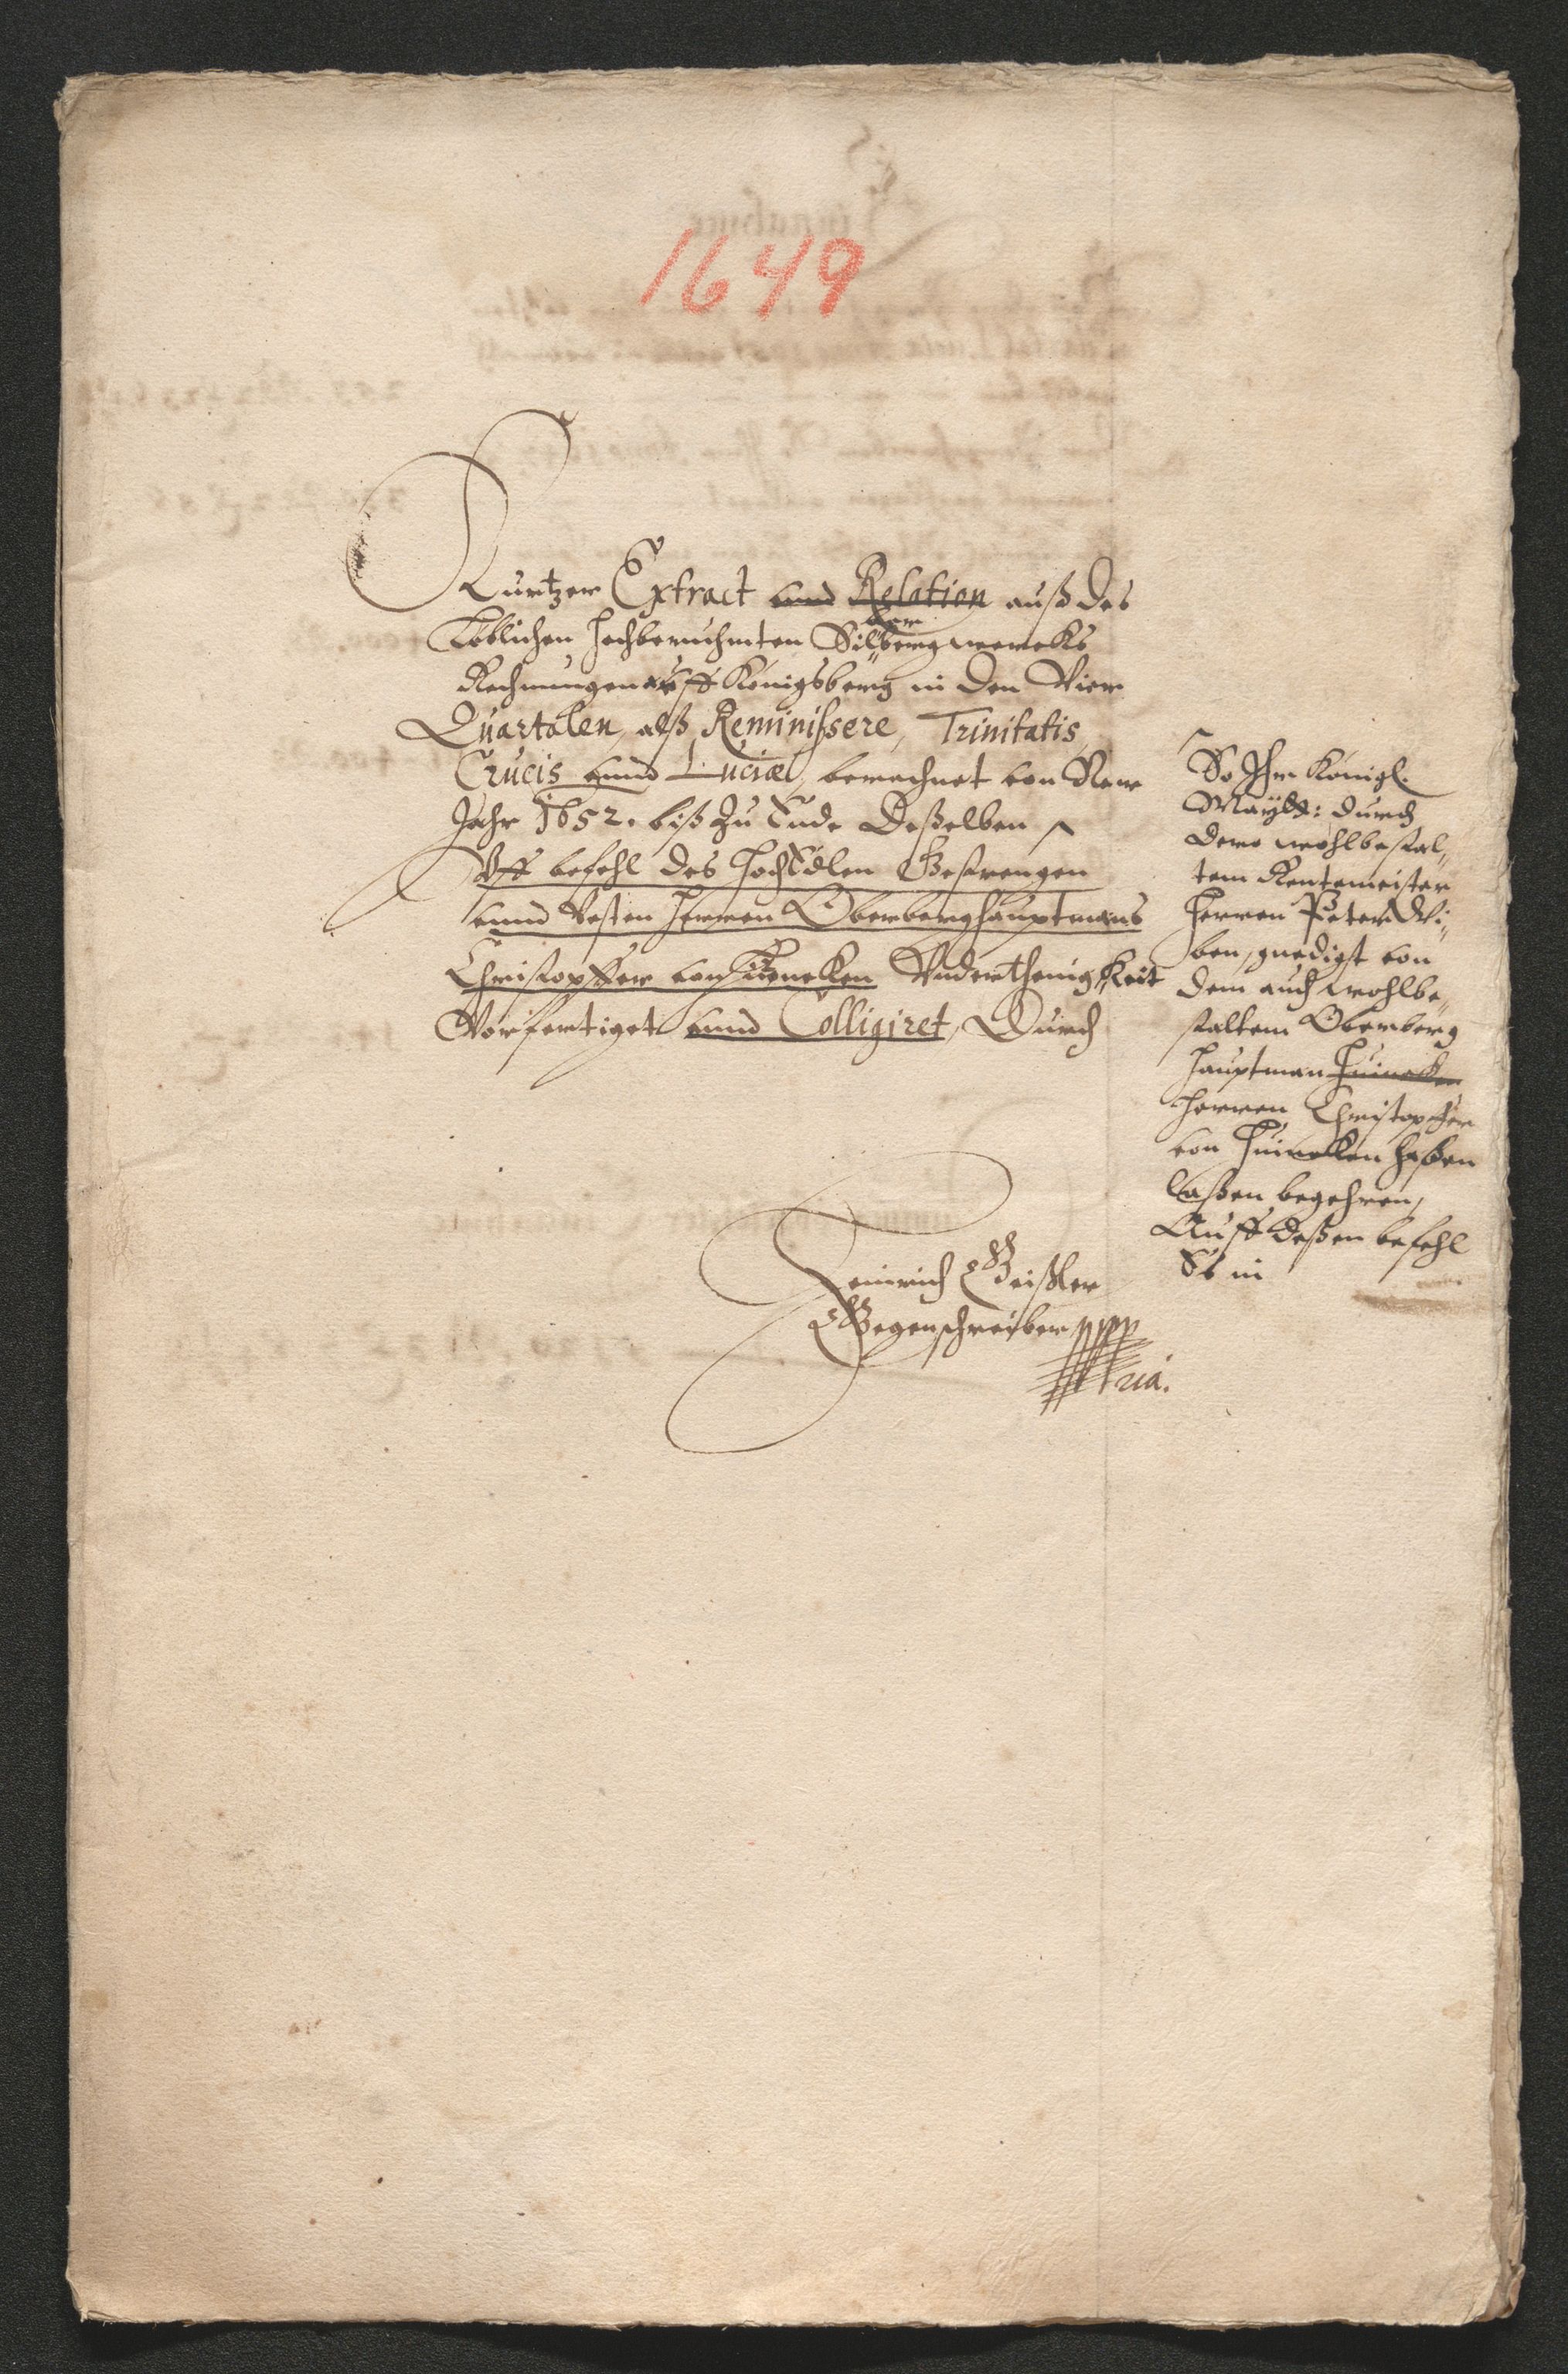 1649
Kurtzer Extract vnd Relation auß des
Löblichen Hochberuhmten Silberbergwercks
Rechnungen auff Königsberg in den Vier
Quartalen, alß Reminißcere, Trinitatis,
Crucis vnnd Luciæ, berechnet von New
Jahr 1652. biß zu Ende Deßelben
Vff befehl des HochEdlen Gestrengen
vnnd Vesten Herren Oberberghauptmans
Christopffer von Vnderthenigkeit
Vorfertiget vnnd Colligiret, Durch
Heinrich Geißler
Gegenschreiber mpp
ria.
So Ihr Königl.
Maÿtt: durch
dero wohlbestal„
tem Rentemeister
Herren Peter Wi„
ben, gnedigst von
dem auch wohlbe„
staltem Oberberg
Hauptman
Herren Christopffer
von haben
laßen begehren,
Auff deßen befehl